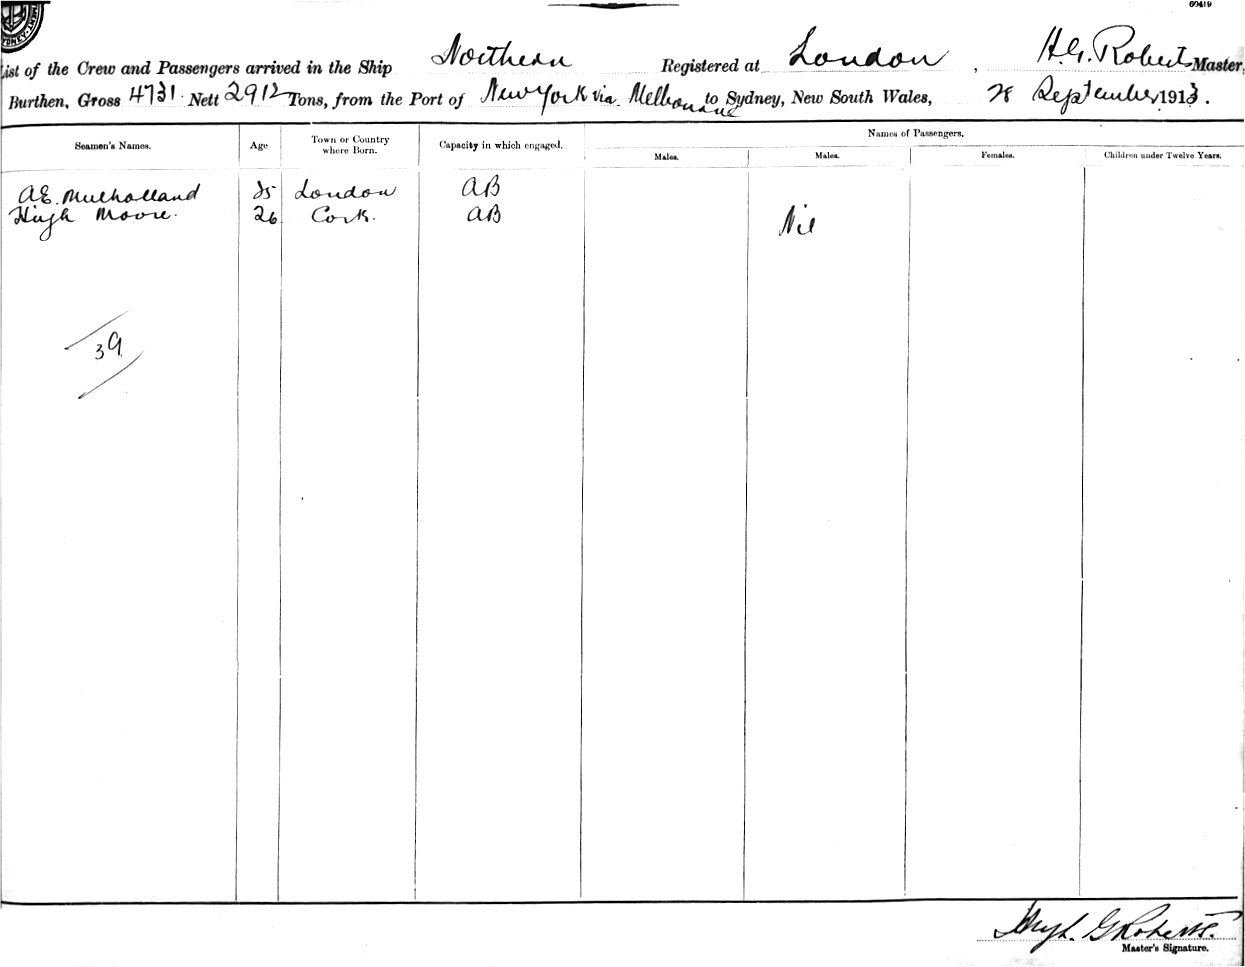 60419
List of the Crew and Passengers arrived in the Ship Northern Registered at London, H.G. Roberts Master,
Burthen, Gross 4731 Nett 2912 Tons, from the Port of New York via Melbourne to Sydney, New South Wales, 28 September 1913.
Seamen's Names. Age Town or Country where Born. Capacity in which engaged. Names of Passengers.
Males. Males. Females. Children under Twelve Years.
A.E. Mulholland London AB
Hugh Moore. 26 Cork. AB
Nil
39
Hugh. G Roberts.
Master's Signature.